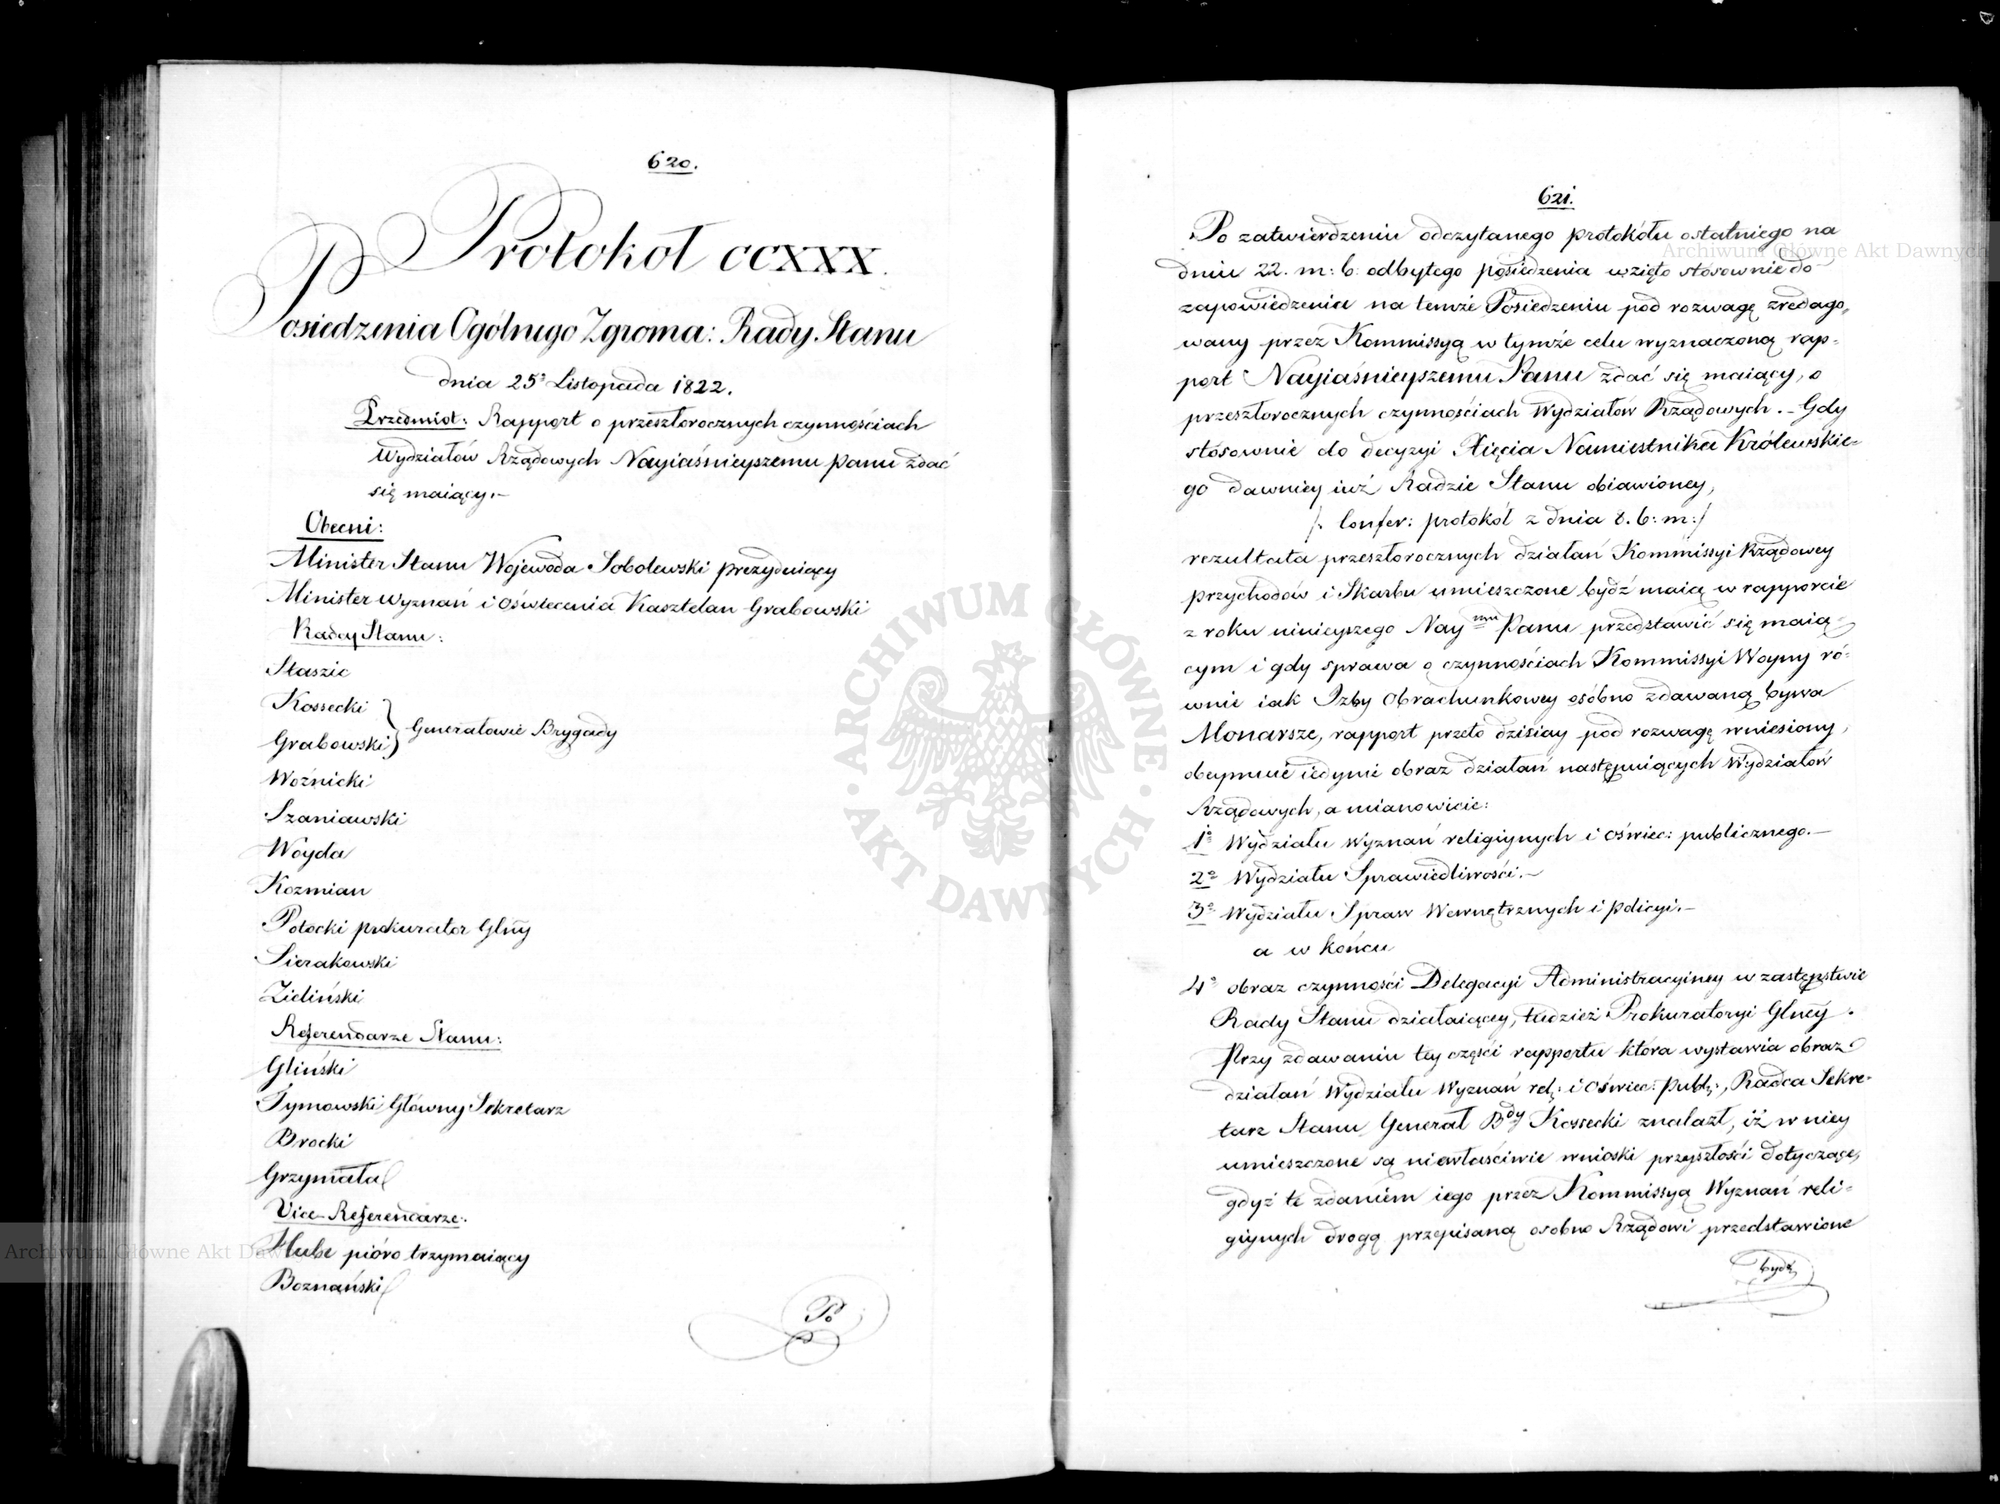 620.
Protokół CCXXX.
Posiedzenia Ogólnego Zgroma: Rady Stanu
dnia 25º Listopada 1822.
Przedmiot: Rapport o przeszłorocznych czynnościach
Wydziałów Rządowych Nayiaśnieyszemu Panu zdać
się maiący.—
Obecni:
Minister Stanu Wojewoda Sobolewski prezyduiący
Minister Wyznań i Oświecenia Kasztelan Grabowski
Radcy Stanu:
Staszic
Kossecki
Grabowski } Generałowie Brygady
Woźnicki
Szaniawski
Woyda
Kozmian
Potocki prokurator Glny
Sierakowski
Zieliński
Referendarze Stanu:
Gliński
Tymowski Główny Sekretarz
Brocki
Grzymała
Vice-Referendarze:
Hube pióro trzymaiący
Boznański
Po
621.
Po zatwierdzeniu odczytanego protokółu ostatniego na
dniu 22. m: b: odbytego posiedzenia wzięto stósownie do
zapowiedzenia na temże Posiedzeniu pod rozwagę zredago„
wany przez Kommissyą w tymże celu wyznaczoną rap-
port Nayiaśnieyszemu Panu zdać się maiący, o
przeszłorocznych czynnościach Wydziałów Rządowych.— Gdy
stósownie do decyzyi Xięcia Namiestnika Królewskie-
go dawniey iuż Radzie Stanu obiawioney,
/: Confer: protokół z dnia 8. b: m:/
rezultata przeszłorocznych działań Kommissyi Rządowey
przychodów i Skarbu umieszczone bydź maią w rapporcie
z roku ninieyszego Nay mu Panu przedstawić się maią-
cym i gdy sprawa o czynnościach Kommissyi Woyny ró-
wnie iak Izby Obrachunkowey osóbno zdawaną bywa
Monarsze, rapport przeto dzisiay pod rozwagę wniesiony,
obeymuie iedynie obraz działań następuiących Wydziałów
Rządowych, a mianowicie:
1º Wydziału Wyznań religiynych i Oświec: publicznego.—
2º Wydziału Sprawiedliwości.—
3º Wydziału Spraw Wewnętrznych i policyi.—
a w końcu
4º obraz czynności Delegacyi Administracyiney w zastępstwie
Rady Stanu działaiącey, tudzież Prokuratoryi Glney.
Przy zdawaniu tey części rapportu która wystawia obraz
działań Wydziału Wyznań rel: i Oświec: publ:, Radca Sekre-
tarz Stanu Generał Bdy Kossecki znalazł, iż w niey
umieszczone są niewłaściwie wnioski przyszłości dotyczące,
gdyż te zdaniem iego przez Kommissyą Wyznań reli-
giynych drogą przepisaną osobno Rządowi przedstawione
bydź
ARCHIWUM GŁÓWNE · AKT DAWNYCH ·
Archiwum Główne Akt Dawnych
Archiwum Główne Akt Dawnych